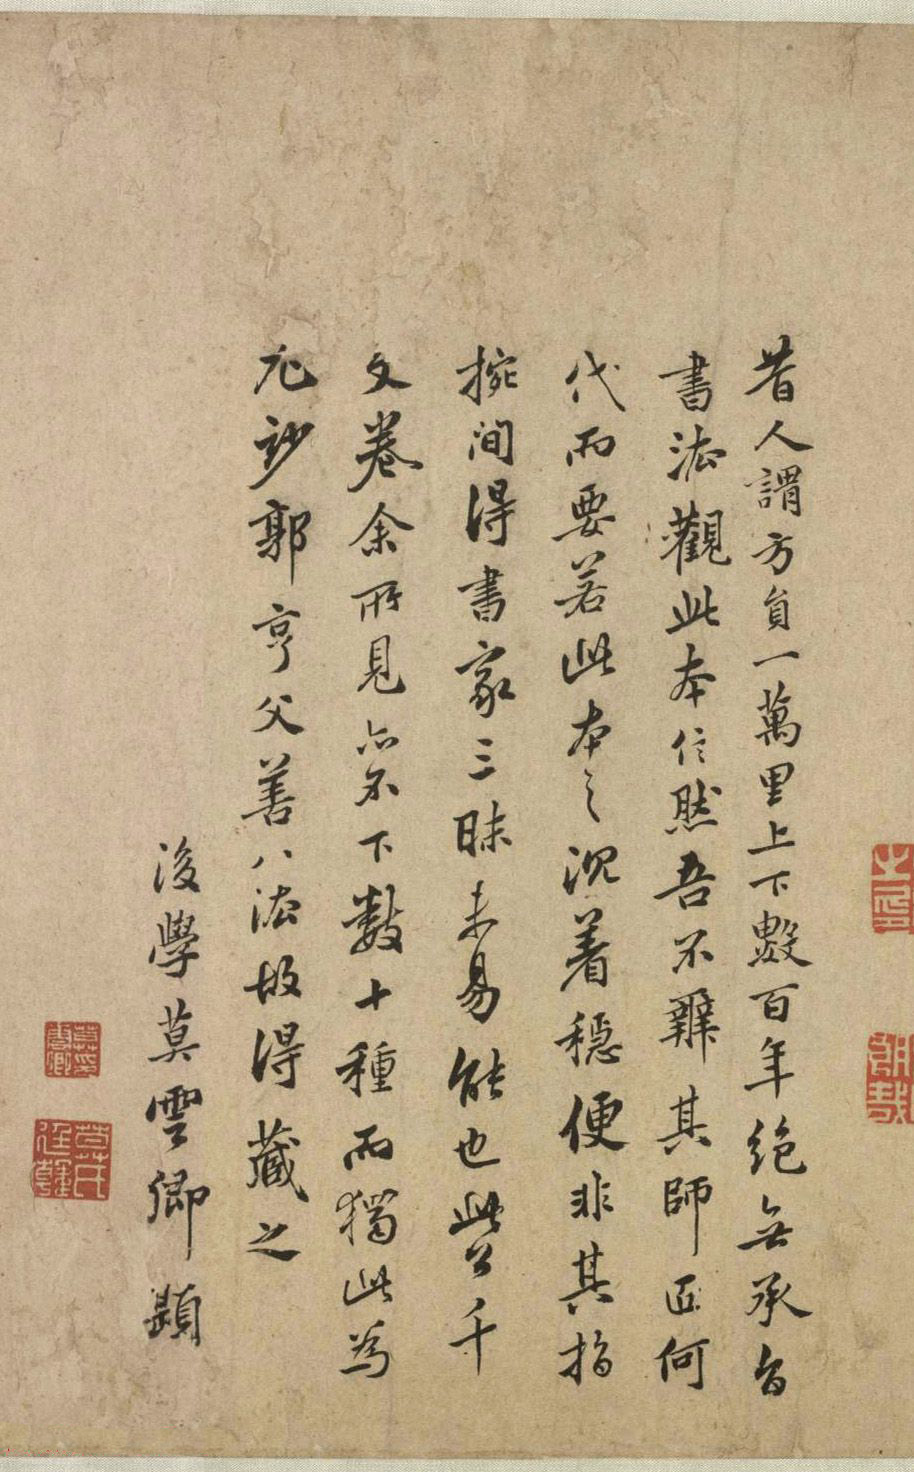 昔人謂方員一萬里上下數百年絕無承旨
書法觀此本信然吾不辨其師匠何
代而要若此本之沉着穩便非其指
捥間得書家三昧未易能也此公千
文卷余所見亦不下數十種而獨此為
尤妙郭亨父善八法故得藏之
後學莫雲卿題
莫氏廷韓